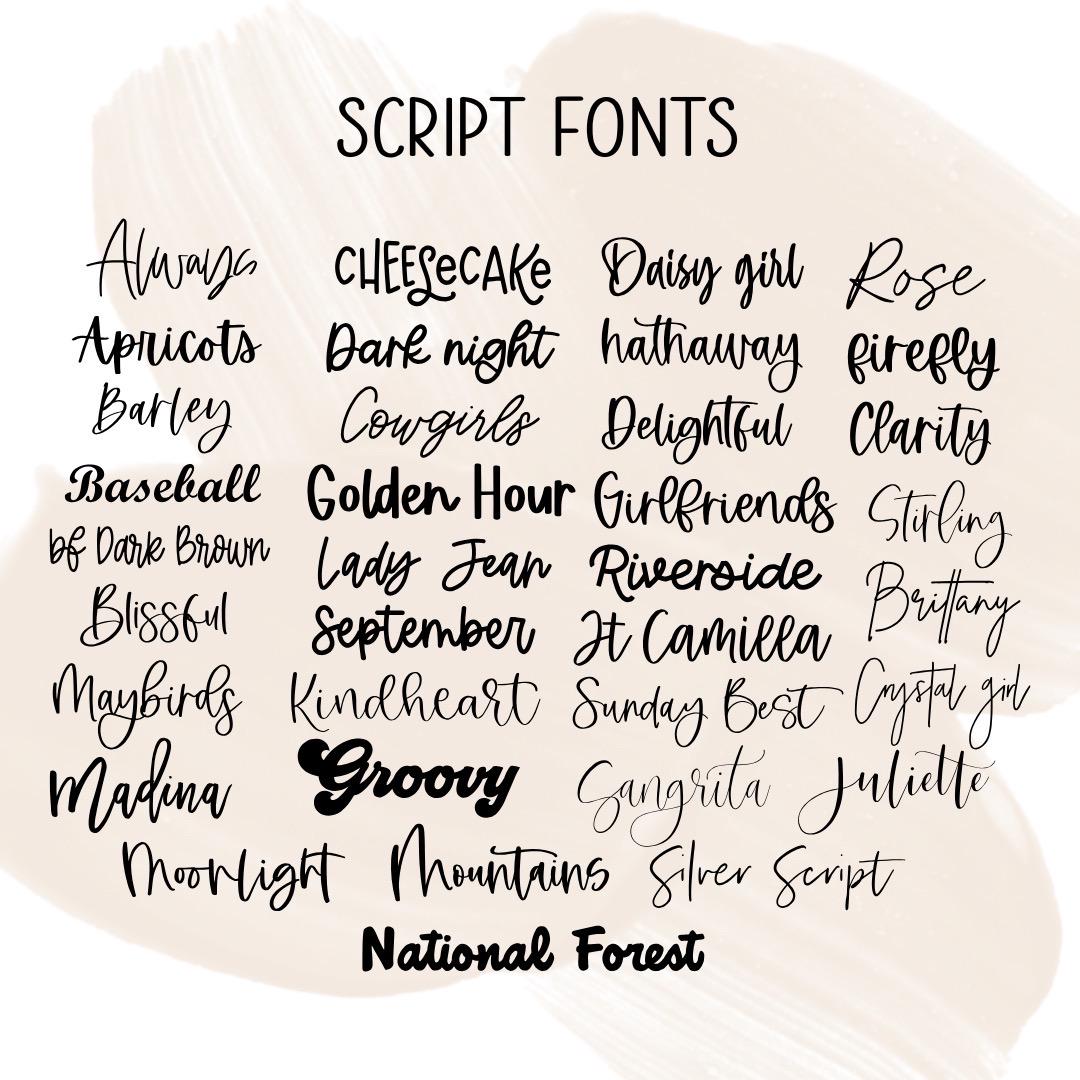 SCRIPT FONTS
Always CHEESeCAKe Daisy girl Rose
Apricots Dark night hathaway firefly
Barley Cowgirls Delightful Clarity
Baseball Golden Hour Girlfriends Stirling
bf Dark Brown Lady Jean Riverside Brittany
Blissful September Jt Camilla
Maybirds Kindheart Sunday Best Crystal girl
Madina Groovy Sangrita Juliette
Moonlight Mountains Silver Script
National Forest